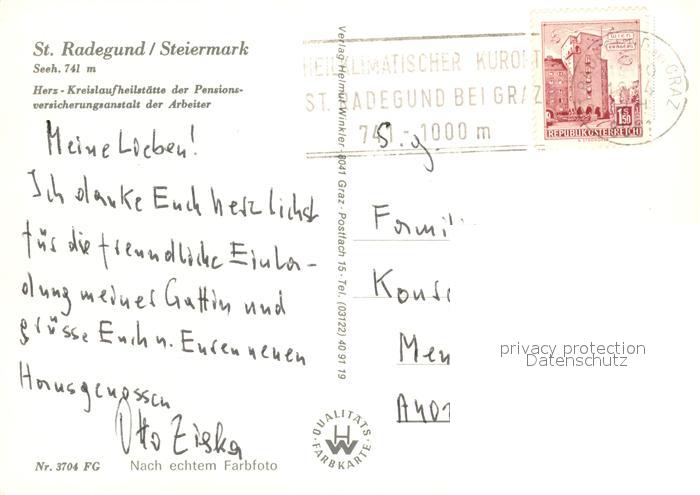 St. Radegund / Steiermark
Seeh. 741 m
Herz - Kreislaufheilstätte der Pensions-
versicherungsanstalt der Arbeiter
Meine Lieben!
Ich danke Euch herzlichst
für die freundliche Einla-
dung meiner Gattin und
grüsse Euch u. Euren neuen
Hausgenossen
Otto Ziska
Nr. 3704 FG
Nach echtem Farbfoto
Verlag Helmut Winkler · 8041 Graz · Postfach 15 · Tel. (03122) 40 91 19
QUALITÄTS-FARBKARTE
HW
HEILKLIMATISCHER KURORT
ST. RADEGUND BEI GRAZ
- 1000 m
WIEN
ERDBERG
1.50
REPUBLIK ÖSTERREICH
GRAZ
Fami
Kons
privacy protection
Datenschutz